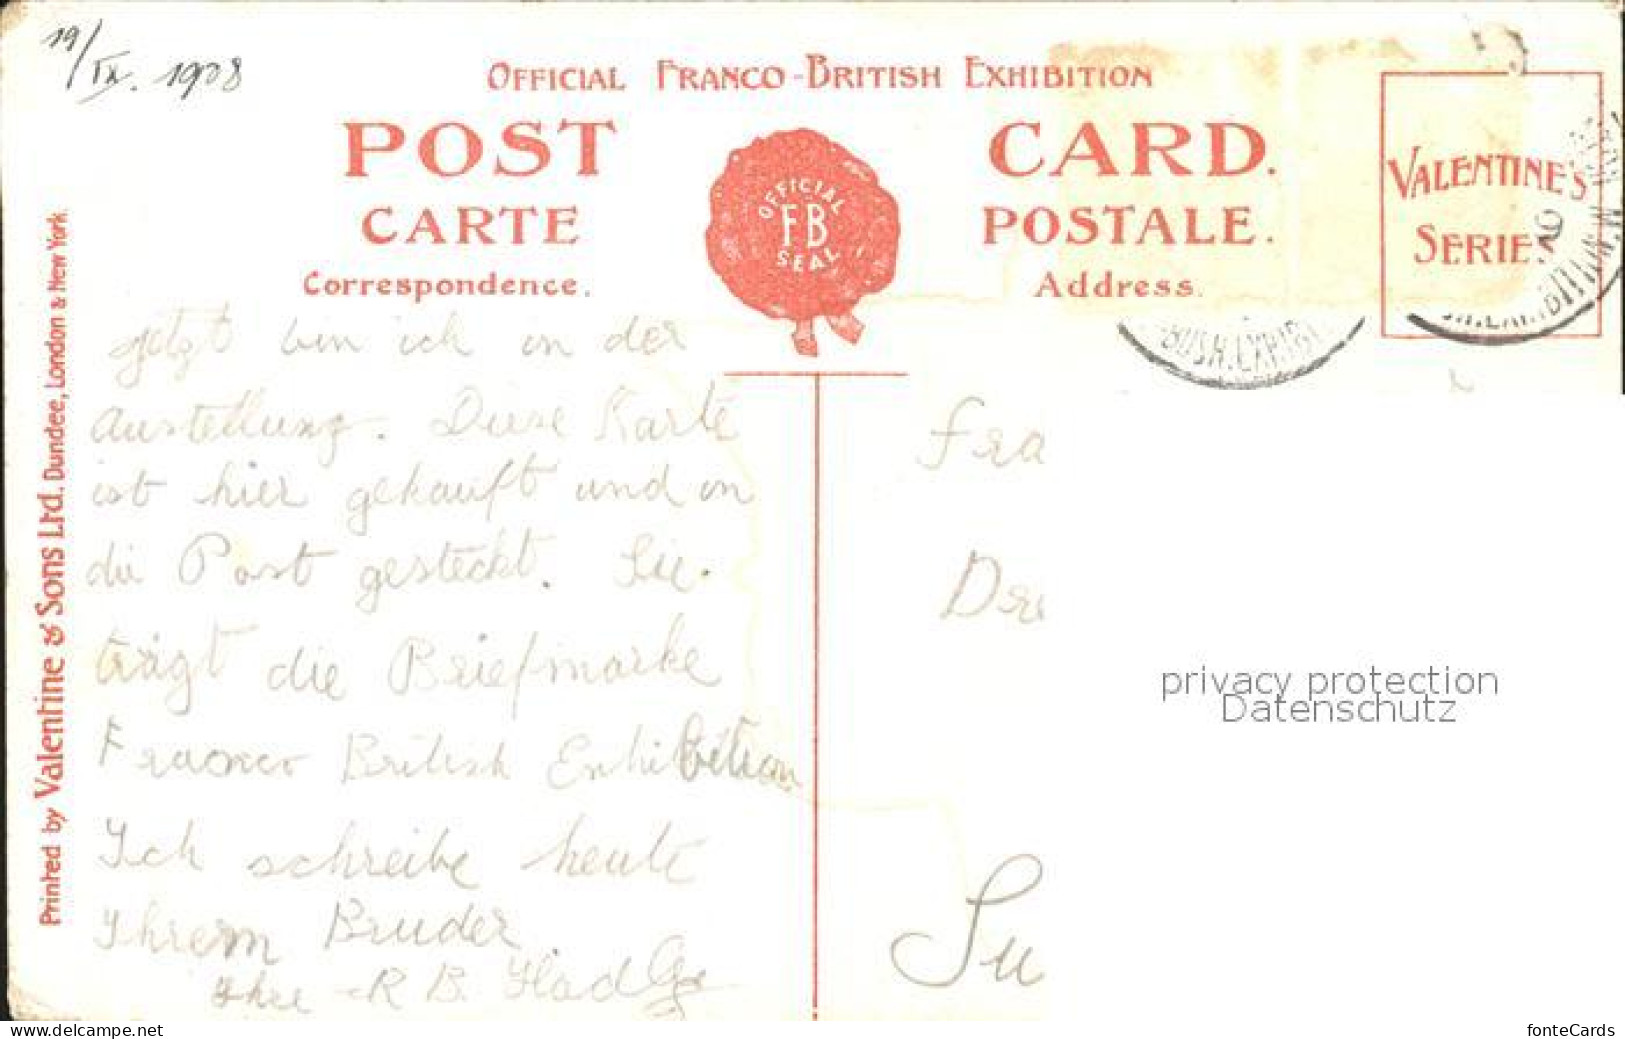 19/IX. 1908
OFFICIAL FRANCO-BRITISH EXHIBITION
POST CARD.
CARTE POSTALE.
Correspondence. Address.
OFFICIAL
FB
SEAL
VALENTINE'S
SERIES
BUSH.EXHIBI
Printed by Valentine & Sons Ltd. Dundee, London & New York.
jetzt bin ich in der
Austellung. Diese Karte
ist hier gekauft und in
die Post gesteckt. Sie
trägt die Briefmarke
Franco British Exhibition
Ich schreibe heute
Ihrem Bruder.
Ihre R B.
Fra
Su
privacy protection
Datenschutz
www.delcampe.net
fonteCards